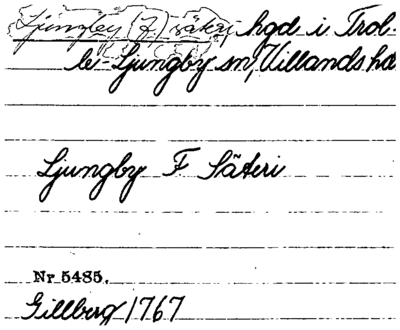 Ljungby (F) säteri, hgd i Trol-
le-Ljungby sn, Villands hd
Ljungby F Säteri
Nr 5485.
Gillberg 1767